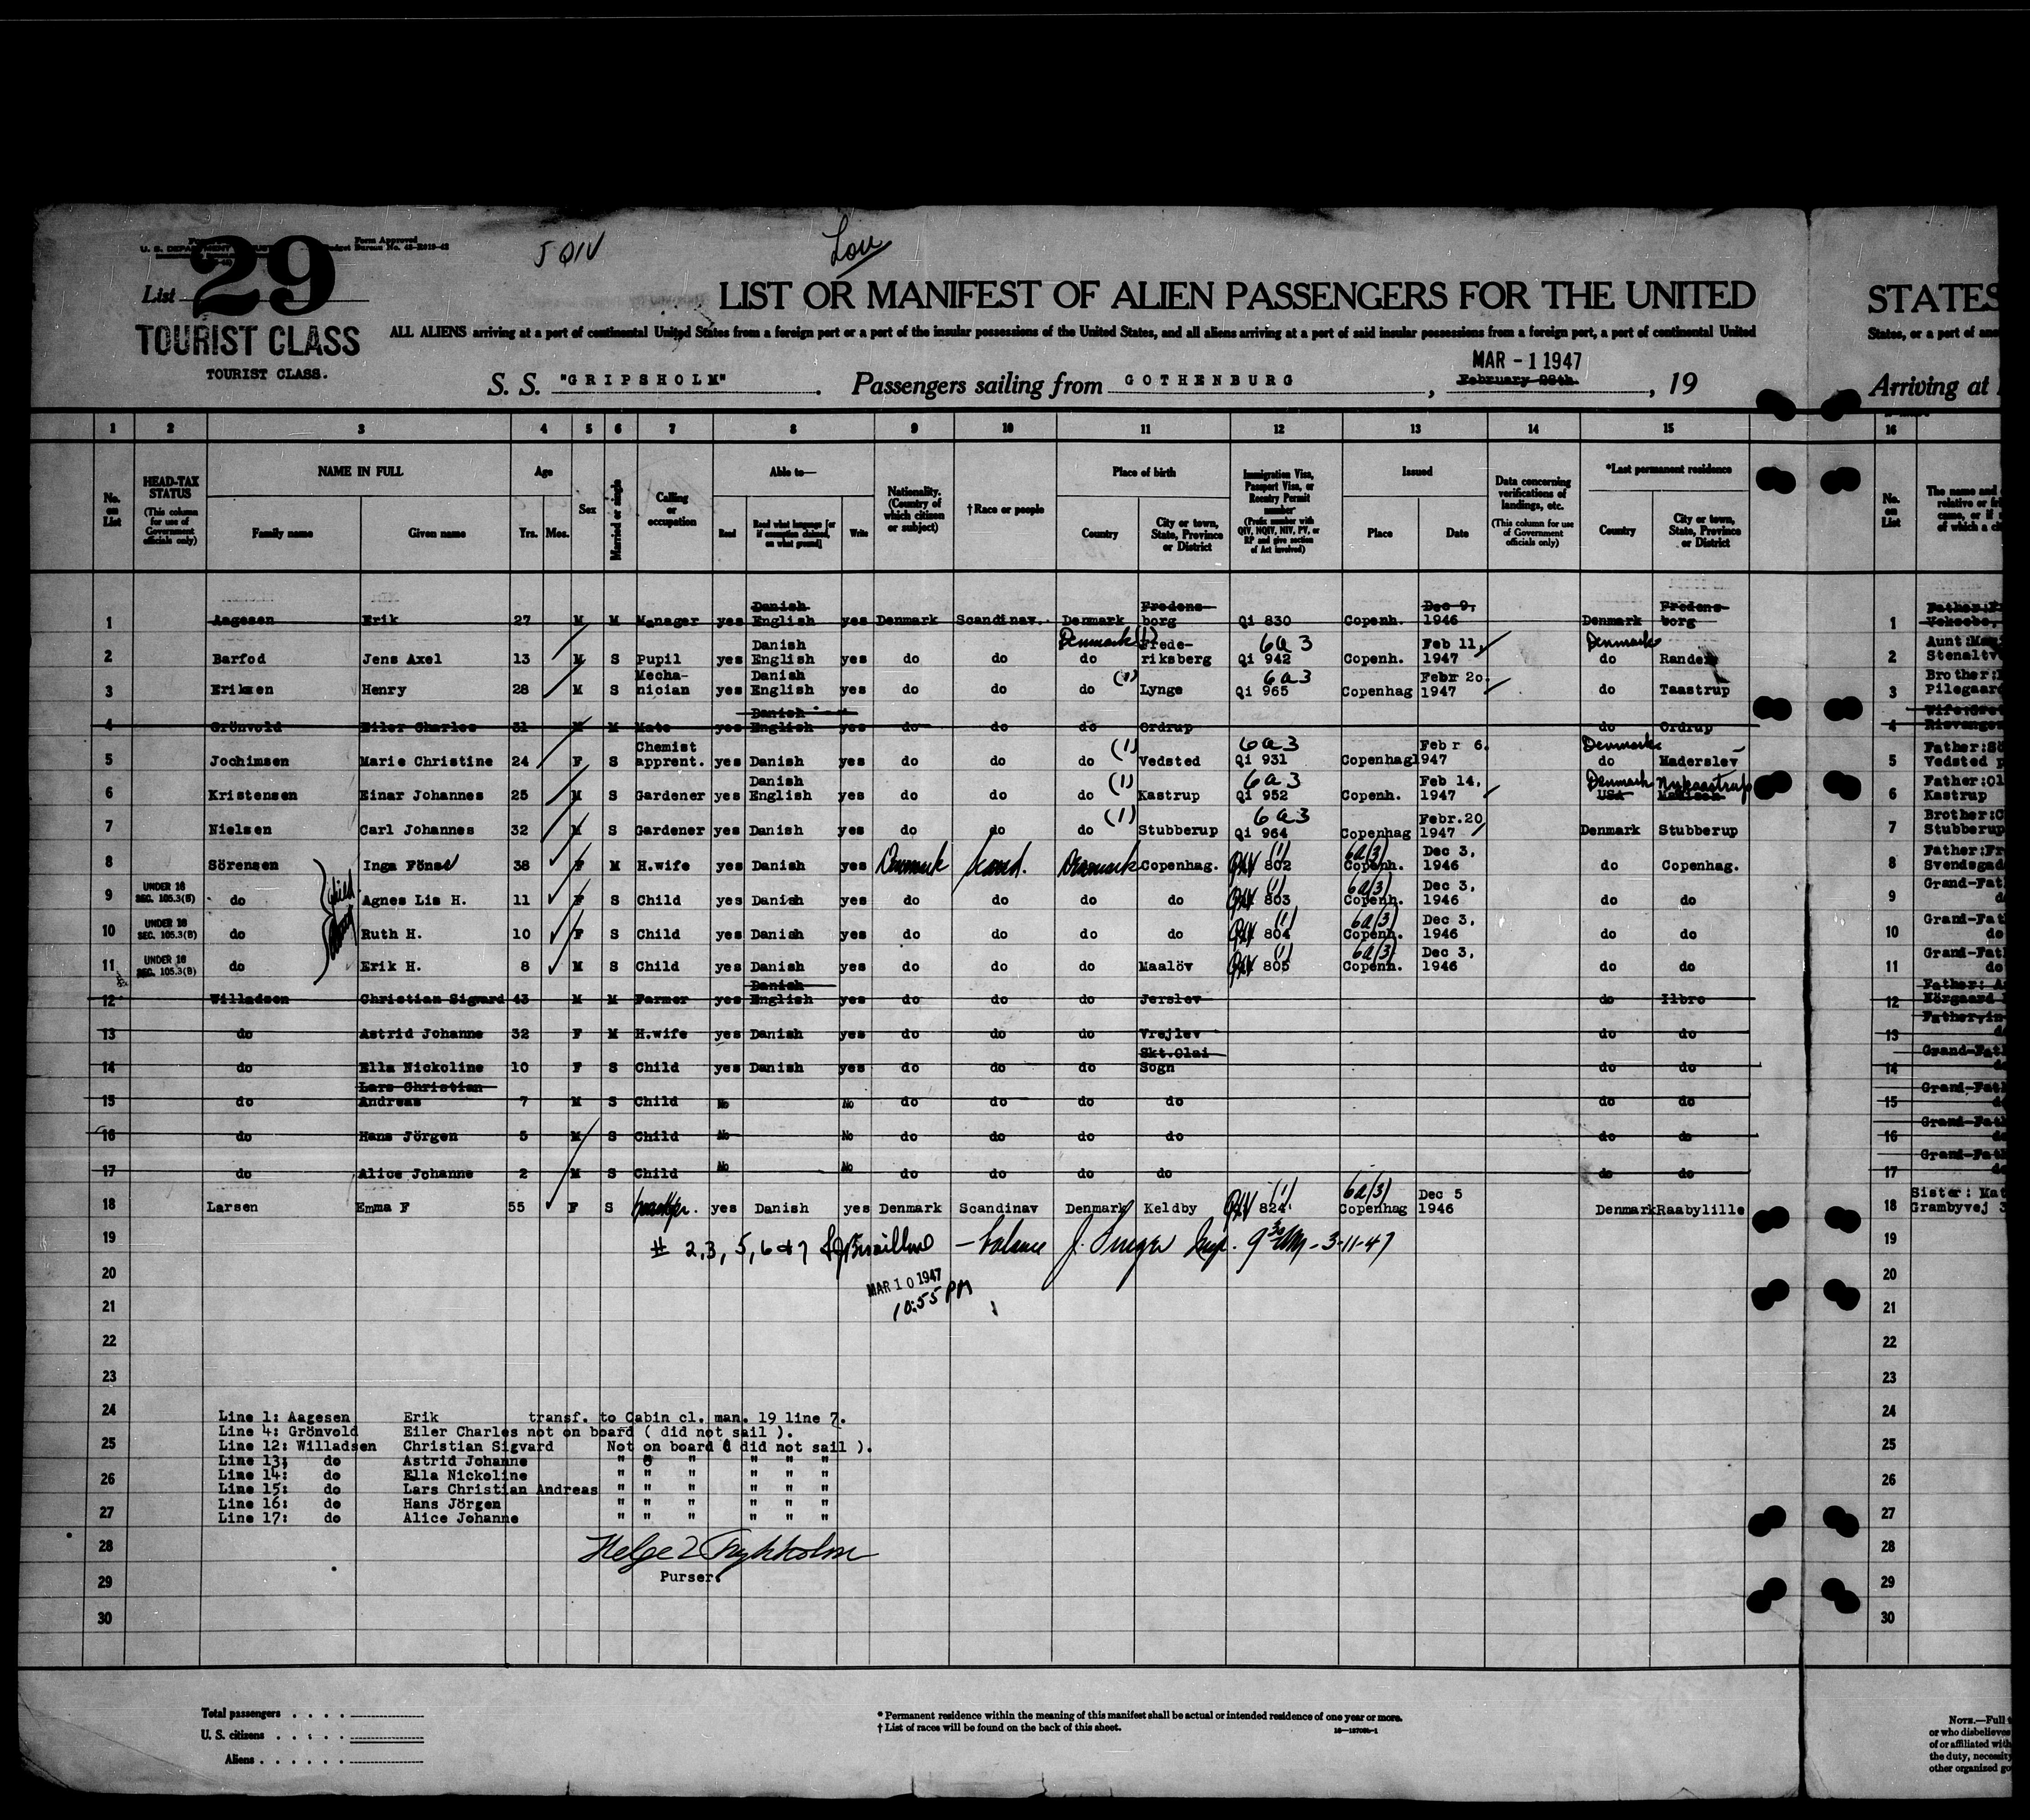 5 QIV
Lou
Form Approved
Budget Bureau No. 43-R019-42
List 29
TOURIST CLASS
TOURIST CLASS.
LIST OR MANIFEST OF ALIEN PASSENGERS FOR THE UNITED
STATES
ALL ALIENS arriving at a port of continental United States from a foreign port or a port of the insular possessions of the United States, and all aliens arriving at a port of said insular possessions from a foreign port, a port of continental United
States, or a port of
S. S. "GRIPSHOLM". Passengers sailing from GOTHENBURG, February 28th. MAR - 1 1947, 19
Arriving at
1 2 3 4 5 6 7 8 9 10 11 12 13 14 15 16
No. on List
HEAD-TAX STATUS (This column for use of Government officials only)
NAME IN FULL
Family name Given name
Age
Yrs. Mos.
Sex
Married or single
Calling or occupation
Able to—
Read Read what language [or if exemption claimed, on what ground] Write
Nationality. (Country of which citizen or subject)
†Race or people
Place of birth
Country City or town, State, Province or District
Immigration Visa, Passport Visa, or Reentry Permit number (Prefix number with QIV, NQIV, NIV, PV, or RP and give section of Act involved)
Issued
Place Date
Data concerning verifications of landings, etc. (This column for use of Government officials only)
*Last permanent residence
Country City or town, State, Province or District
No. on List
The name and
1 Aagesen Erik 27 M M Manager yes Danish English yes Denmark Scandinav. Denmark Fredensborg Qi 830 Copenh. Dec 9, 1946 Denmark Fredensborg 1
2 Barfod Jens Axel 13 M S Pupil yes Danish English yes do do Denmark (1) do Frede-riksberg 6a3 Qi 942 Copenh. Feb 11, 1947 Denmark do Randers 2 Aunt:
3 Eriksen Henry 28 M S Mecha-nician yes Danish English yes do do do (1) Lynge 6a3 Qi 965 Copenhag Febr 20. 1947 do Taastrup 3 Brother:
4 Grönvold Eiler Charles 31 M M Mate yes Danish English yes do do do Ordrup do Ordrup 4
5 Jochimsen Marie Christine 24 F S Chemist apprent. yes Danish yes do do do (1) Vedsted 6a3 Qi 931 Copenhag Febr 6. 1947 Denmark do Haderslev 5 Father: Vedsted
6 Kristensen Einar Johannes 25 M S Gardener yes Danish English yes do do do (1) Kastrup 6a3 Qi 952 Copenh. Feb 14, 1947 Denmark USA 6 Father: Kastrup
7 Nielsen Carl Johannes 32 M S Gardener yes Danish yes do do do (1) Stubberup 6a3 Qi 964 Copenhag Febr.20 1947 Denmark Stubberup 7 Brother: Stubberup
8 Sörensen Inga Föns 38 F M H.wife yes Danish yes Denmark Scand. Denmark Copenhag. QIV (1) 802 6a(3) Copenh. Dec 3, 1946 do Copenhag. 8 Father:
9 UNDER 16 SEC. 105.3(B) do Agnes Lis H. 11 F S Child yes Danish yes do do do do QIV (1) 803 6a(3) Copenh. Dec 3, 1946 do do 9
10 UNDER 16 SEC. 105.3(B) do Ruth H. 10 F S Child yes Danish yes do do do do QIV (1) 804 6a(3) Copenh. Dec 3, 1946 do do 10
11 UNDER 16 SEC. 105.3(B) do Erik H. 8 M S Child yes Danish yes do do do Maalöv QIV (1) 805 6a(3) Copenh. Dec 3, 1946 do do 11
12 Willadsen Christian Sigvard 43 M M Farmer yes Danish English yes do do do Jerslev do Ilbro 12 Father:
13 do Astrid Johanne 32 F M H.wife yes Danish yes do do do Vrejlev do do 13
14 do Ella Nickoline 10 F S Child yes Danish yes do do do Skt.Olai Sogn do do 14
15 do Lars Christian Andreas 7 M S Child No No do do do do do do 15
16 do Hans Jörgen 5 M S Child No No do do do do do do 16
17 do Alice Johanne 2 M S Child No No do do do do do do 17
18 Larsen Emma F 55 F S yes Danish yes Denmark Scandinav Denmark Keldby QIV (1) 824 6a(3) Copenhag Dec 5 1946 Denmark Raabylille 18 Sister: Grambyvej
19 # 2,3, 5, 6 & 7 – balance Insp. 9 30 AM - 3-11-47 19
20 MAR 10 1947 20
21 10:55 PM 21
22 22
23 23
24 24
Line 1: Aagesen Erik transf. to Cabin cl. man. 19 line 7.
Line 4: Grönvold Eiler Charles not on board ( did not sail ).
25 Line 12: Willadsen Christian Sigvard Not on board ( did not sail ). 25
Line 13: do Astrid Johanne " " " " " "
26 Line 14: do Ella Nickoline " " " " " " 26
Line 15: do Lars Christian Andreas " " " " " "
Line 16: do Hans Jörgen " " " " " "
27 Line 17: do Alice Johanne " " " " " " 27
28 28
29 Purser. 29
30 30
Total passengers . . . .
U. S. citizens . . . .
Aliens . . . . . .
* Permanent residence within the meaning of this manifest shall be actual or intended residence of one year or more.
† List of races will be found on the back of this sheet.
NOTE.—Full
or who disbelieves
of or affiliated with
the duty, necessity
other organized